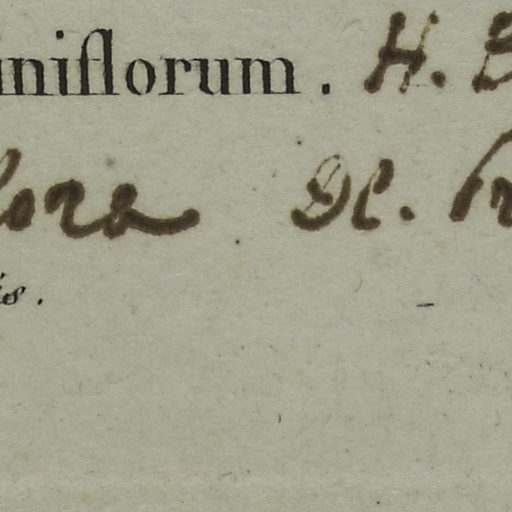 iniflorum. H. B
lora De. Pr
is.